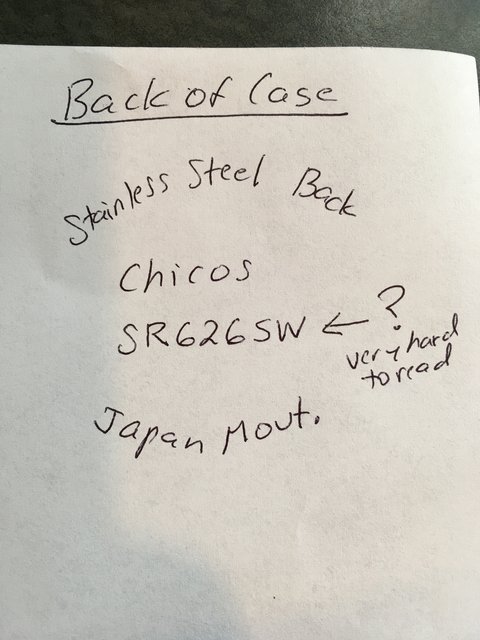 Back of Case
Stainless Steel Back
Chicos
SR626SW ← ?
very hard
to read
Japan Mout.